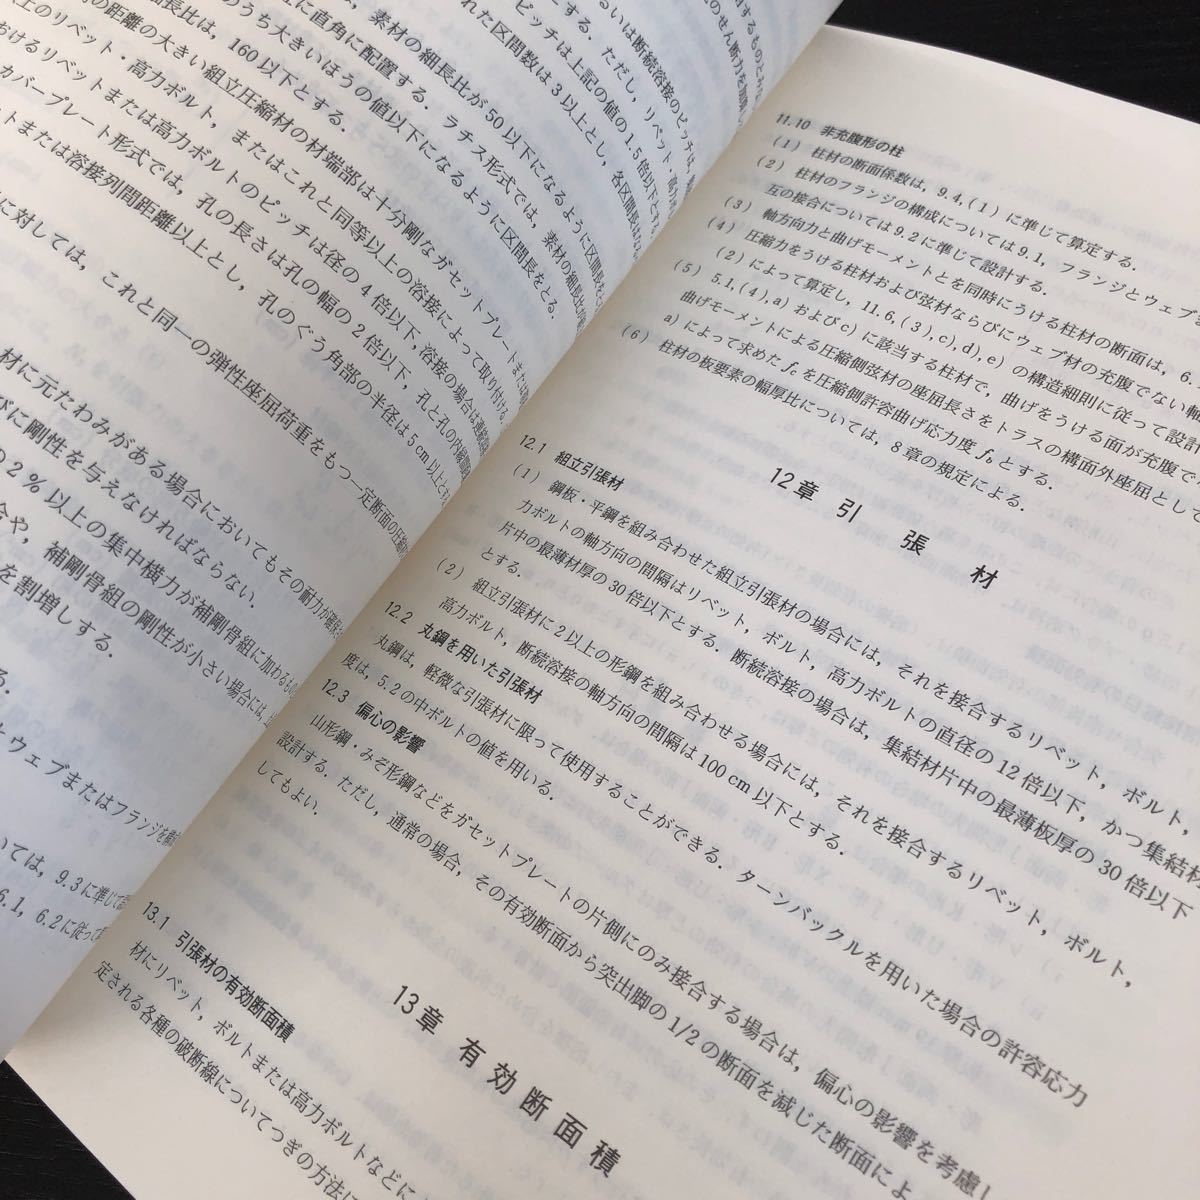 るいは断続溶接のピッチは，
ただし，リベット・高力
ピッチは上記の値の1.5倍以下とする
れた区間数は3以上とし，各区間長はな
素材の細長比が50以下になるように区間長
のうち大きいほうの値以下になるように区間長をとる．
に直角に配置する．ラチス形式では，素材の細長比が
長比は，160以下とする．
の距離の大きい組立圧縮材の材端部は十分剛なガセットプレートまたは
上のリベット・高力ボルト，またはこれと同等以上の溶接によって取り付ける
おけるリベットまたは高力ボルトのピッチは径の4倍以下，溶接の場合は連続溶
カバープレート形式では，孔の長さは孔の幅の2倍以下，孔と孔の内縁間距
トまたは溶接列間距離以上とし，孔のぐう角部の半径は5cm以上と
に対しては，これと同一の弾性座屈荷重をもつ一定断面の圧縮
材に元たわみがある場合においてもその耐力が確保
びに剛性を与えなければならない．
の2％以上の集中横力が補剛骨組に加わるもの
合や，補剛骨組の剛性が小さい場合には，
を割増しする．
る．
とウェブまたはフランジを
いては，9.3に準じて
6.1，6.2に従って
11.10 非充腹形の柱
(1) 柱材の断面係数は，9.4,(1)に準じて算定する．
(2) 柱材のフランジの構成については9.1，フランジとウェブ
互の接合については9.2に準じて設計する．
(3) 軸方向力と曲げモーメントとを同時にうける柱材の断面は，6.
(4) 圧縮力をうける柱材および弦材ならびにウェブ材の充腹でない軸
(2)によって算定し，11.6,(3),c),d),e)の構造細則に従って設計
(5) 5.1,(4),a)およびc)に該当する柱材で，曲げをうける面が充腹で
曲げモーメントによる圧縮側弦材の座屈長さをトラスの構面外座屈として
a)によって求めた fc を圧縮側許容曲げ応力度 fb とする．
(6) 柱材の板要素の幅厚比については，8章の規定による．
12章 引 張 材
12.1 組立引張材
(1) 鋼板・平鋼を組み合わせた組立引張材の場合には，それを接合するリベット，ボルト，
力ボルトの軸方向の間隔はリベット，ボルト，高力ボルトの直径の12倍以下，かつ集結材
片中の最薄材厚の30倍以下とする．断続溶接の場合は，集結材片中の最薄板厚の30倍以下
とする．
(2) 組立引張材に2以上の形鋼を組み合わせる場合には，それを接合するリベット，ボルト，
高力ボルト，断続溶接の軸方向の間隔は100cm以下とする．
12.2 丸鋼を用いた引張材
丸鋼は，軽微な引張材に限って使用することができる．ターンバックルを用いた場合の許容応力
度は，5.2の中ボルトの値を用いる．
12.3 偏心の影響
山形鋼・みぞ形鋼などをガセットプレートの片側にのみ接合する場合は，偏心の影響を考慮し
設計する．ただし，通常の場合，その有効断面から突出脚の1/2の断面を減じた断面によ
してもよい．
13章 有効断面積
13.1 引張材の有効断面積
材にリベット，ボルトまたは高力ボルトなどに
定される各種の破断線についてつぎの方法に